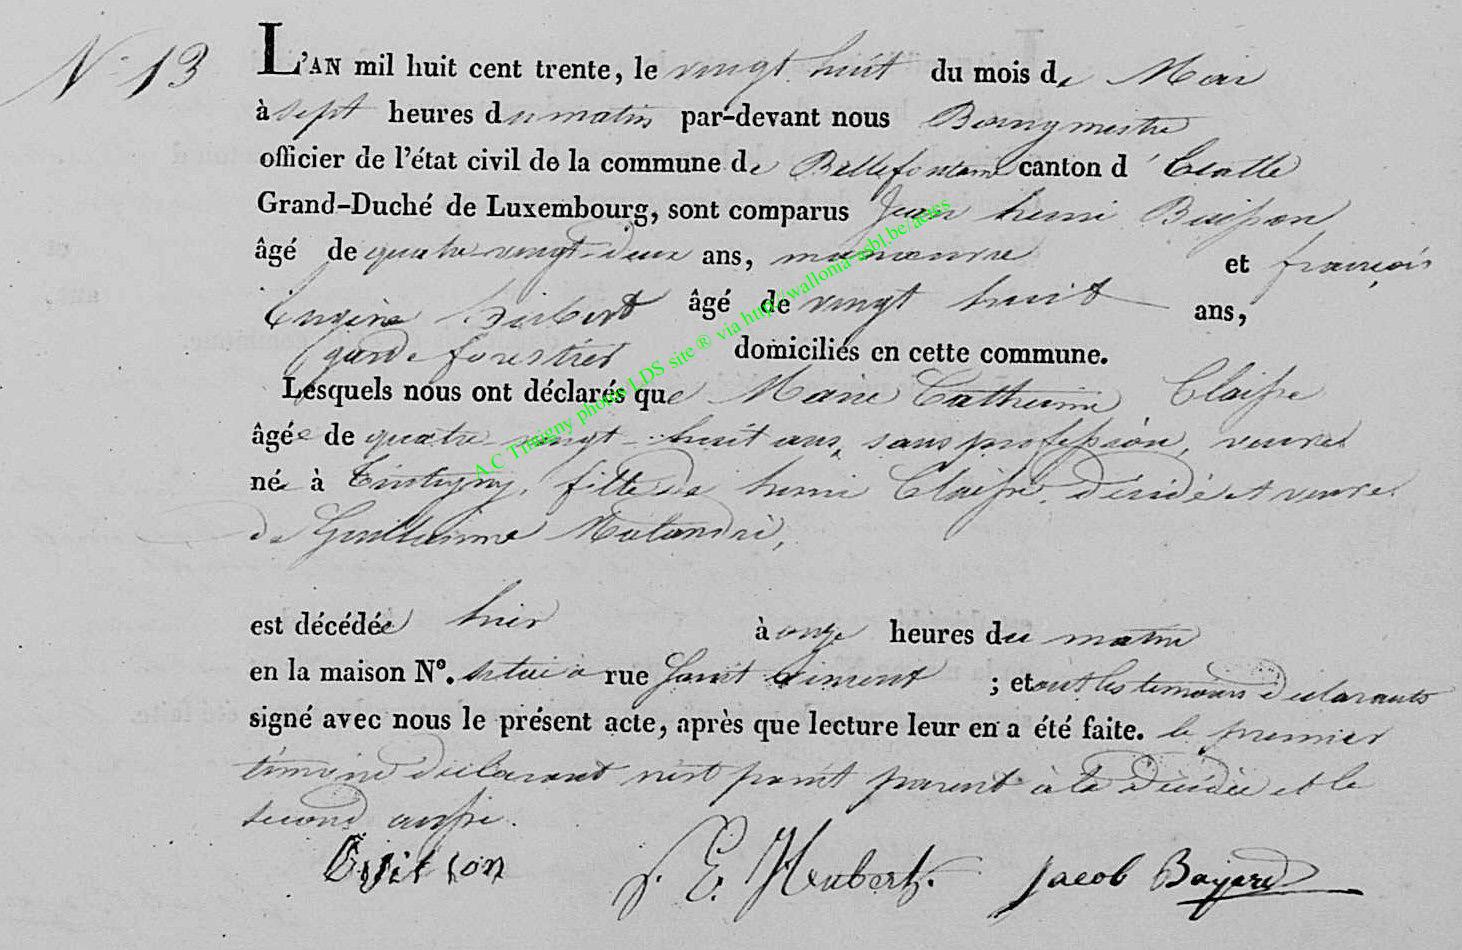 N° 13
L'AN mil huit cent trente, le vingt huit du mois de Mai
à sept heures du matin par-devant nous Bourgmestre
officier de l'état civil de la commune de Bellefontaine canton d'Etalle
Grand-Duché de Luxembourg, sont comparus Jean henri
âgé de quatre-vingt-deux ans, manoeuvre et françois
Eugène hubert âgé de vingt huit ans,
garde forestier domiciliés en cette commune.
Lesquels nous ont déclarés que Marie Catherine Claisse
âgée de quatre-vingt-huit ans, sans profession, veuve
née à Tintigny, fille de henri Claisse, décédé et veuve
de Guillaume Malandré,
est décédée hier à onze heures du matin
en la maison N°. située à rue ; et ont les temoins declarants
signé avec nous le présent acte, après que lecture leur en a été faite. le premier
témoin declarant n'est point parent à la décédée et le
second aussi.
F. E. Hubert. Jacob Bayard
A.C Tintigny photos LDS site ® via http://wallonia-asbl.be/actes